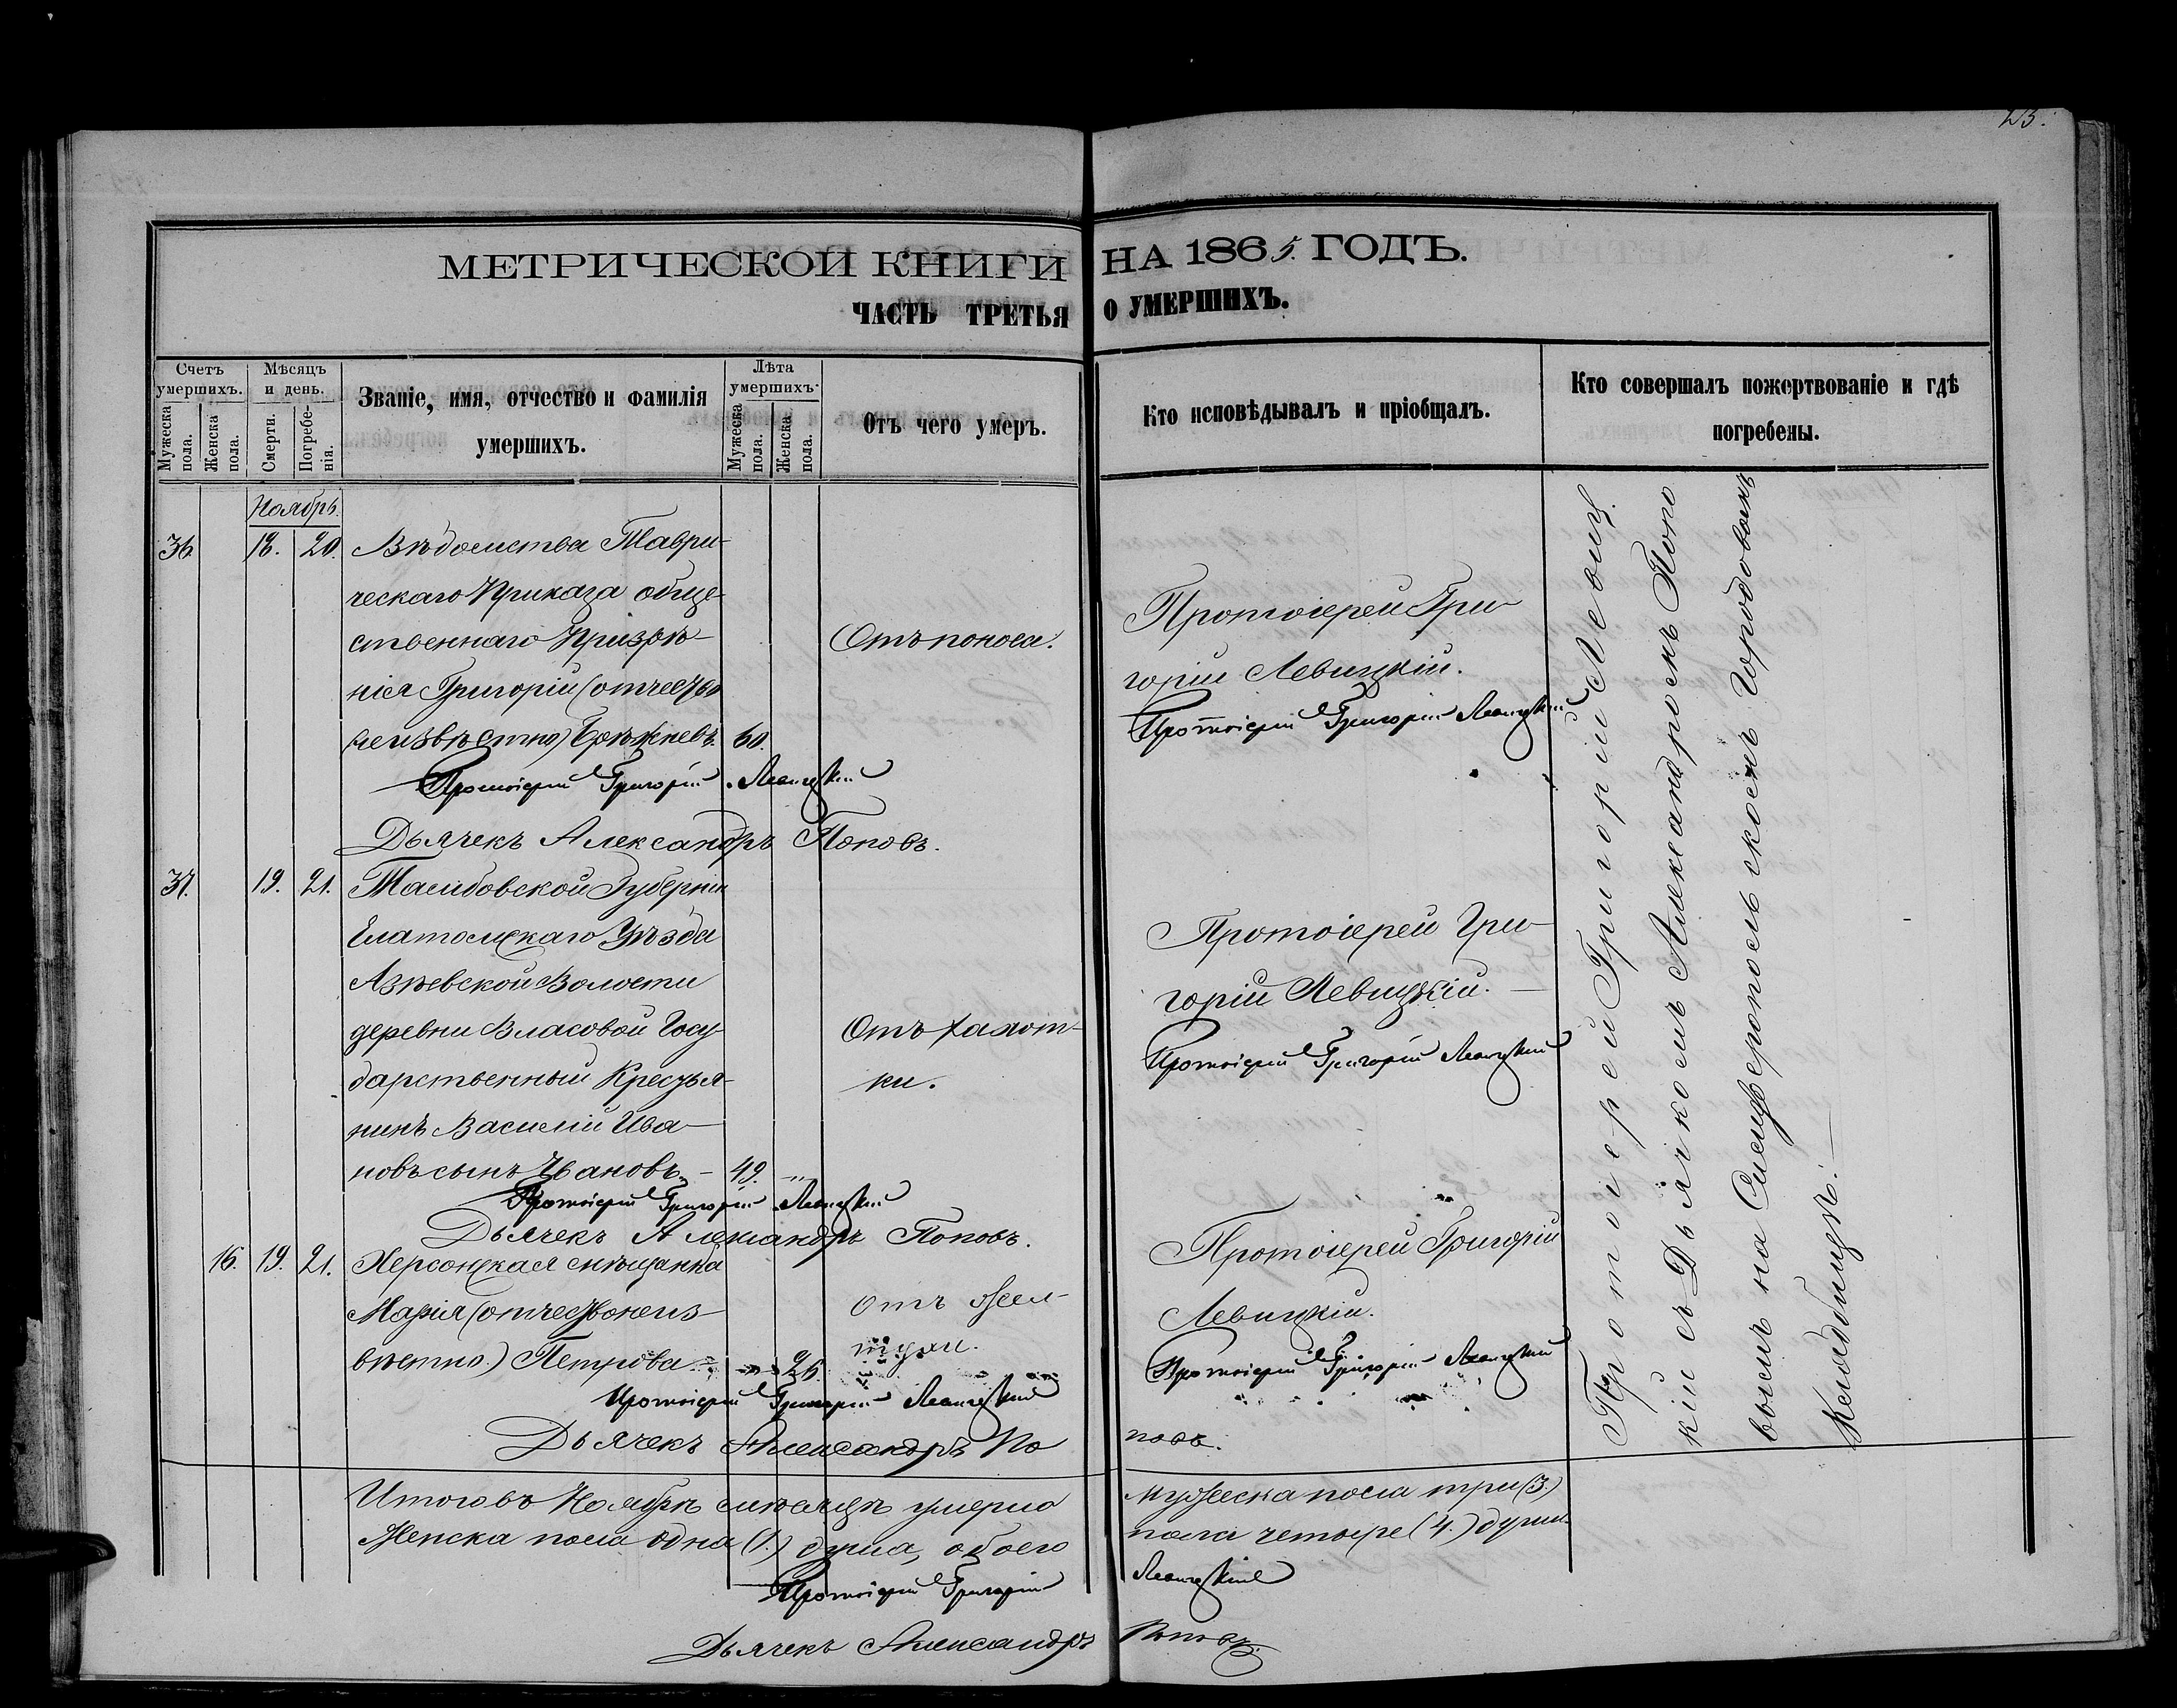 23.
МЕТРИЧЕСКОЙ КНИГИ НА 1865. ГОДЪ.
ЧАСТЬ ТРЕТЬЯ О УМЕРШИХЪ.
Счетъ умершихъ.
Мужеска пола.
Женска пола.
Мѣсяцъ и день.
Смерти.
Погребенія.
Званіе, имя, отчество и фамилія
умершихъ.
Лѣта умершихъ.
Мужеска пола.
Женска пола.
Отъ чего умеръ.
Кто исповѣдывалъ и пріобщалъ.
Кто совершалъ пожертвованіе и гдѣ
погребены.
Ноябрь.
36. 18. 20. Вѣдомства Таври-
ческаго Приказа обще-
ственнаго Призрѣ-
нія Григорій (отчество
неизвѣстно) 60.
Отъ поноса.
Протоіерей Гри-
горій Левицкій.
Протоіерей Григорій Левицкій
Протоіерей Григорій Левицкій
Дьячекъ Александръ Поповъ.
37. 19. 21. Тамбовской Губерніи
Елатомскаго Уѣзда
Азѣевской Волости
деревни Власовой Госу-
дарственный Крестья-
нинъ Василій Ива-
новъ сынъ Ивановъ. 49. "
Отъ чахот-
ки.
Протоіерей Гри-
горій Левицкій.
Протоіерей Григорій Левицкій
Протоіерей Григорій Левицкій
Дьячекъ Александръ Поповъ.
16. 19. 21. Херсонская мѣщанка
Марія (отчество неиз-
вѣстно.) Петрова " 26.
Отъ
Протоіерей Григорій
Левицкій.
Протоіерей Григорій Левицкій
Протоіерей Григорій Левицкій
Дьячекъ Александръ Поповъ.
Протоіерей Григорій Левиц
кій съ Дьячкомъ Александромъ Попо
вымъ на Симферопольскомъ Городовомъ
Кладбищѣ.
Итого въ Ноябрѣ мѣсяцѣ умерло мужеска пола три (3.)
Женска пола одна (1.) душа, обоего пола четыре (4.) души.
Протоіерей Григорій Левицкій
Дьячекъ Александръ Поповъ.